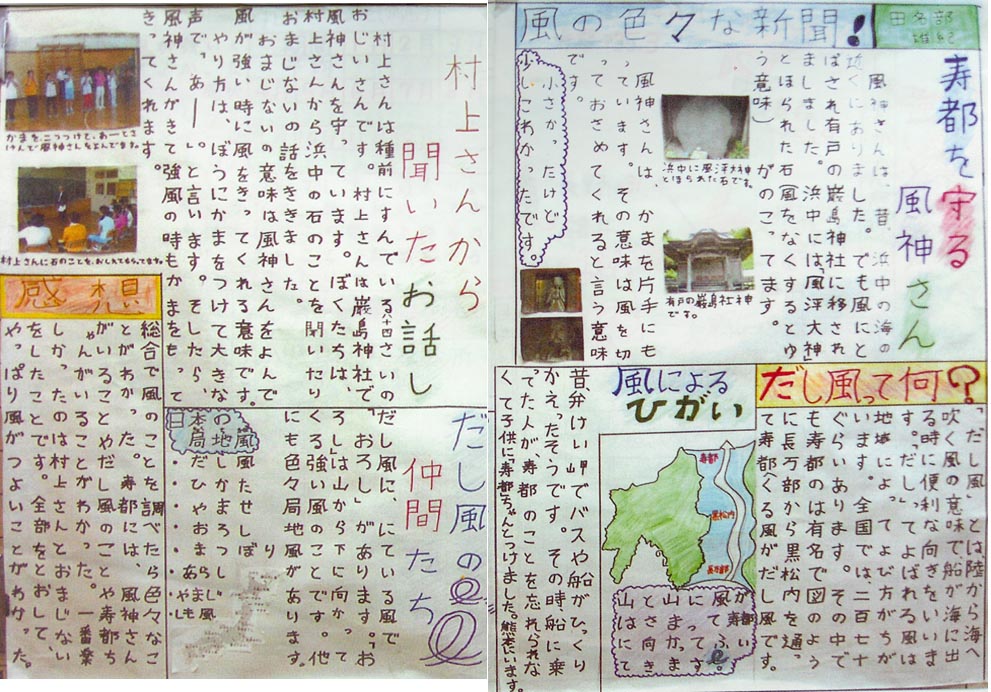 風の色々な新聞!
田名部
雄紀
寿都を守る
風神さん
風神さんは、昔、浜中の海の
近くにありました。でも風にと
ばされ有戸の厳島神社に移され
ました。浜中には「風泙大神」
とほられた石
がのこってます。
風をなくするとゆ
う意味)
風神さんは、かまを片手にも
っています。その意味は風を切
っておさめてくれると言う意味
です。
小さかったけど
少しこわかったです。
浜中に風泙大神
とほられた石です。
有戸の厳島社神
です。
だし風って何?
「だし風」とは、陸から海へ
吹く風の意味で船が海に出
る時に便利な向きをいいま
す。「だし」ってよばれる風は
地域によってよび方がちが
います。全国では、二百七十
ぐらいあります。その中で
も寿都のは有名で図のよう
に長万部から黒松内を通っ
て寿都にくる風がだし風です。
風による
ひがい
寿都
黒松内
長万部
風が寿都
にふい
山によって
まがったり
とさ向き
山はにて
昔、弁けい岬でバスや船がひっくり
かえったそうです。その時、船に乗
ってた人が、寿都のことを忘れられな
くて子供に「寿都」ちゃんとつけました。熊本にいます。
村上さんから
聞いたお話し
村上さんは種前にすんでいる八十四さいの
おじいさんです。村上さんは厳島神社で
風神さんを守っています。ぼくたちは、
村上さんから浜中の石のことを聞いたり
おまじないの話をききました。
おまじないの意味は風神さんをよんで
風が強い時に風をきってくれる意味です。
やり方は、ぼうにかまをつけて大きな
声で、あーー。と言います。そしたら、
風神さんがきて強風の時もかまをもって
きってくれます。
かまを、こつつけて、あーとさ
けんで風神さんをよんでます。
村上さんに石のことを、おしえてもらってます。
だし風の
仲間たち
だし風に、にている風で
「おろし」があります。「お
ろし」は山から下に向かって
くる強い風のことです。他
にも色々局地風があります。
日本の局地風
感想
総合で風のことを調べたら色々なこ
とがわかった。寿都には、風神さん
がいることやだし風のことや寿都ち
ゃんがいるのがわかった。一番楽
しかったのは村上さんとおまじない
をしたことです。全部をとおして、
やっぱり風がつよいことがわかった。